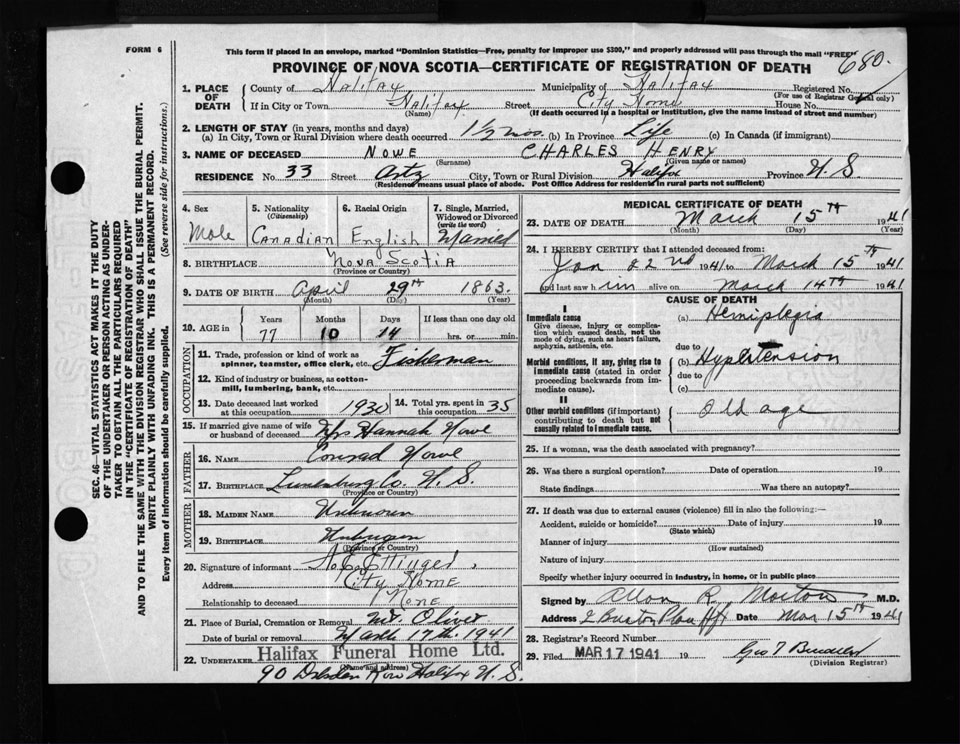 FORM 6
This form if placed in an envelope, marked "Dominion Statistics—Free, penalty for improper use $300," and properly addressed will pass through the mail "FREE"
680.
PROVINCE OF NOVA SCOTIA—CERTIFICATE OF REGISTRATION OF DEATH
1. PLACE OF DEATH
County of Halifax Municipality of Halifax Registered No.
(For use of Registrar General only)
If in City or Town Halifax Street City Home House No.
(Name) (If death occurred in a hospital or institution, give the name instead of street and number)
2. LENGTH OF STAY (in years, months and days)
(a) In City, Town or Rural Division where death occurred 1½ mos. (b) In Province Life (c) In Canada (if immigrant)
3. NAME OF DECEASED NOWE CHARLES HENRY
(Surname) (Given name or names)
RESIDENCE No. 33 Street Artz City, Town or Rural Division Halifax Province N. S.
(Residence means usual place of abode. Post Office Address for residents in rural parts not sufficient)
SEC. 46—VITAL STATISTICS ACT MAKES IT THE DUTY
OF THE UNDERTAKER OR PERSON ACTING AS UNDER-
TAKER TO OBTAIN ALL THE PARTICULARS REQUIRED
IN THE "CERTIFICATE OF REGISTRATION OF DEATH"
AND TO FILE THE SAME WITH THE DIVISION REGISTRAR WHO SHALL ISSUE THE BURIAL PERMIT.
WRITE PLAINLY WITH UNFADING INK. THIS IS A PERMANENT RECORD.
Every item of information should be carefully supplied. (See reverse side for instructions.)
4. Sex
Male
5. Nationality
(Citizenship)
Canadian
6. Racial Origin
English
7. Single, Married,
Widowed or Divorced
(write the word)
Married
8. BIRTHPLACE NOVA SCOTIA
(Province or Country)
9. DATE OF BIRTH April 29th 1863.
(Month) (Day) (Year)
10. AGE in Years Months Days If less than one day old
77 10 14 hrs. or min.
OCCUPATION
11. Trade, profession or kind of work as
spinner, teamster, office clerk, etc. Fisherman
12. Kind of industry or business, as cotton-
mill, lumbering, bank, etc.
13. Date deceased last worked
at this occupation 1930
14. Total yrs. spent in
this occupation 35
15. If married give name of wife
or husband of deceased Mrs Hannah Nowe
FATHER
16. NAME Conrad Nowe
17. BIRTHPLACE Lunenburg Co. N. S.
(Province or Country)
MOTHER
18. MAIDEN NAME Unknown
19. BIRTHPLACE Unknown
(Province or Country)
20. Signature of informant Ettinger
Address City Home
Relationship to deceased None
21. Place of Burial, Cremation or Removal Mt. Olivet
Date of burial or removal March 17th. 1941
22. UNDERTAKER Halifax Funeral Home Ltd.
(Name and address)
90 Dresden Row Halifax N. S.
MEDICAL CERTIFICATE OF DEATH
23. DATE OF DEATH March 15TH 1941
(Month) (Day) (Year)
24. I HEREBY CERTIFY that I attended deceased from:
Jan 22nd 1941 to March 15TH 1941
and last saw him alive on March 14TH 1941
CAUSE OF DEATH
I
Immediate cause
Give disease, injury or complica-
tion which caused death, not the
mode of dying, such as heart failure,
asphyxia, asthenia, etc.
(a) Hemiplegia
due to
Morbid conditions, if any, giving rise to
immediate cause (stated in order
proceeding backwards from im-
mediate cause).
(b) Hypertension
due to
(c)
II
Other morbid conditions (if important)
contributing to death but not
causally related to immediate cause.
Old age
25. If a woman, was the death associated with pregnancy?
26. Was there a surgical operation? Date of operation 19
State findings Was there an autopsy?
27. If death was due to external causes (violence) fill in also the following:—
Accident, suicide or homicide? Date of injury 19
(State which)
Manner of injury
(How sustained)
Nature of injury
Specify whether injury occurred in industry, in home, or in public place
Signed by Allan R. Morton M.D.
Address Hfx Date Mar 15TH 1941
28. Registrar's Record Number
29. Filed MAR 17 1941 19 Geo
(Division Registrar)